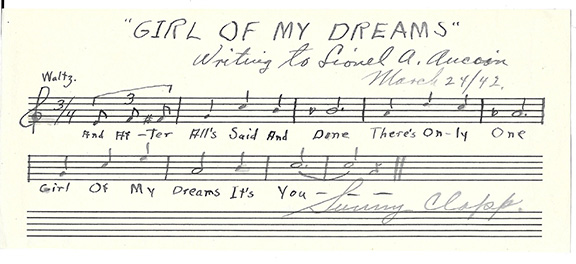 "GIRL OF MY DREAMS"
Writing to Lionel A. Aucoin
March 24/42.
Waltz.
3/4 3
And Af-ter All's Said And Done There's On-ly One
Girl Of My Dreams It's You -
Sunny Clapp.